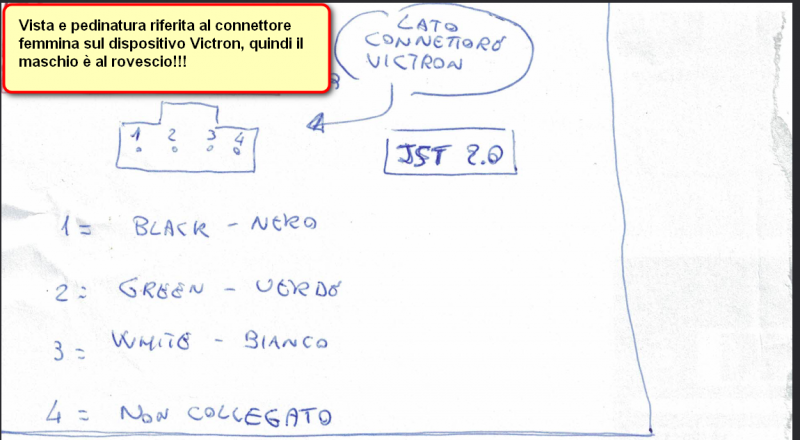 Vista e pedinatura riferita al connettore
femmina sul dispositivo Victron, quindi il
maschio è al rovescio!!!
LATO
CONNETTORE
VICTRON
1 2 3 4
JST 2.0
1 = BLACK - NERO
2 = GREEN - VERDE
3 = WHITE - BIANCO
4 = NON COLLEGATO